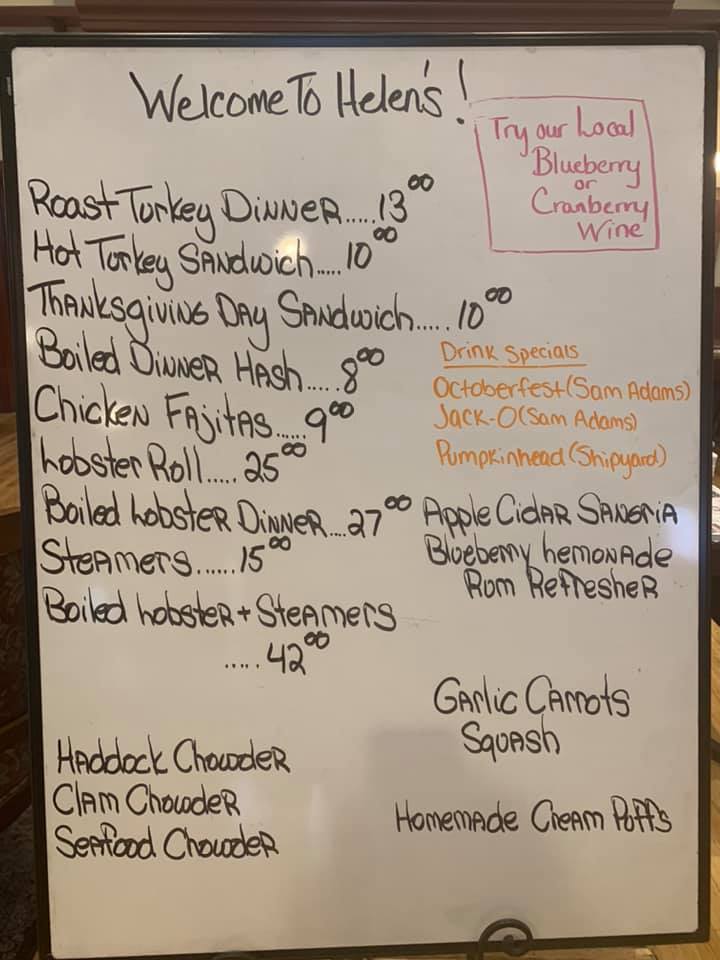 Welcome To Helen's!
Try our Local
Blueberry
or
Cranberry
Wine
Roast Turkey Dinner.....13.00
Hot Turkey Sandwich.....10.00
Thanksgiving Day Sandwich.....10.00
Boiled Dinner Hash.....8.00
Chicken Fajitas......9.00
Lobster Roll.....25.00
Boiled Lobster Dinner....27.00
Steamers......15.00
Boiled Lobster + Steamers
.....42.00
Drink Specials
Octoberfest (Sam Adams)
Jack-O (Sam Adams)
Pumpkinhead (Shipyard)
Apple Cidar Sangria
Blueberry Lemonade
Rum Refresher
Garlic Carrots
Squash
Haddock Chowder
Clam Chowder
Seafood Chowder
Homemade Cream Puffs